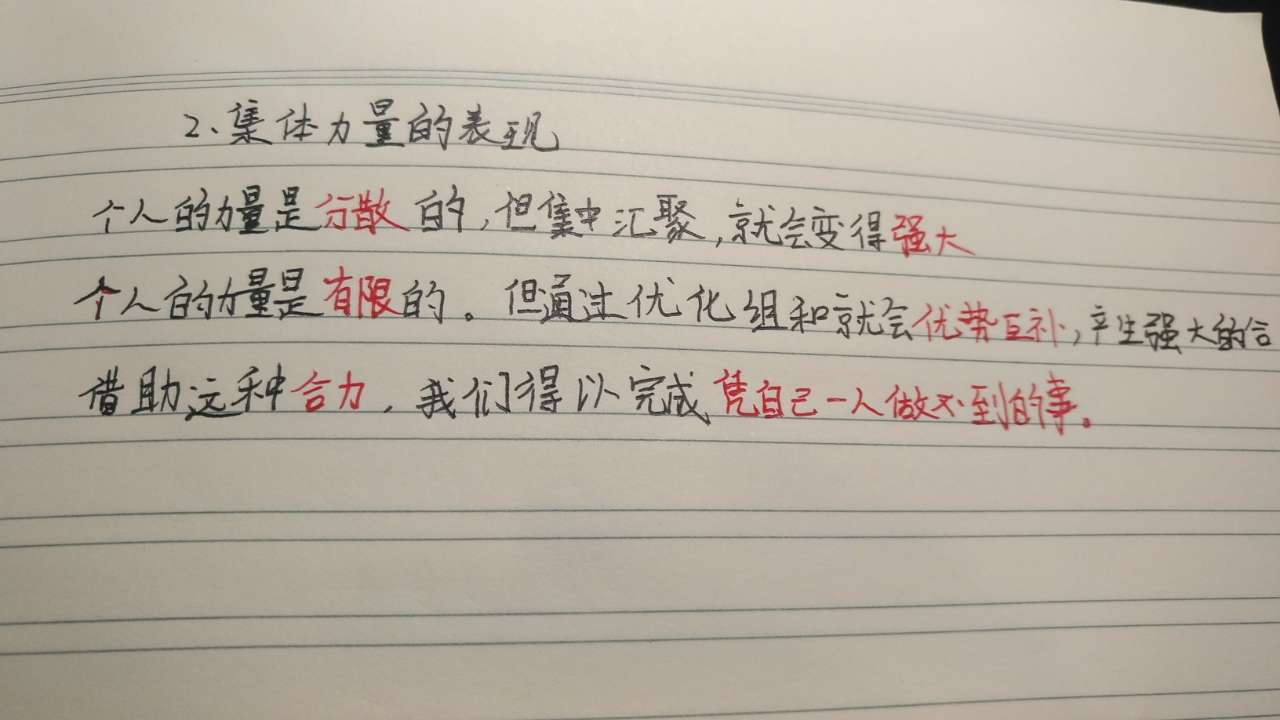 2、集体力量的表现
个人的力量是分散的,但集中汇聚,就会变得强大
个人的力量是有限的。但通过优化组和就会优势互补,产生强大的合
借助这种合力,我们得以完成凭自己一人做不到的事。